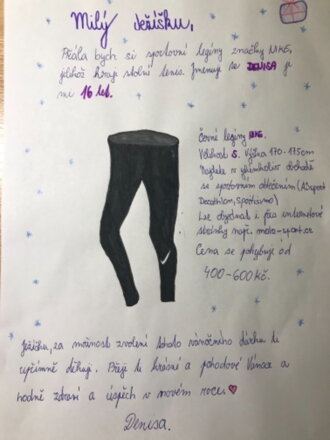 Milý Ježíšku,
Přála bych si sportovní legíny značky NIKE,
jelikož hraji stolní tenis. Jmenuji se DENISA je
mi 16 let.
Černé legíny NIKE.
Velikost S. Výška 170-175cm
Najdete v jakémkoliv obchodě
se sportovním oblečením (A3sport
Decathlon, Sportisimo)
Lze objednat i přes internetové
stránky např. molo-sport.cz
Cena se pohybuje od
400-600 kč.
Ježíšku, za možnost zvolení tohoto vánočního dárku ti
upřímně děkuji. Přeji ti krásné a pohodové Vánoce a
hodně zdraví a úspěch v novém roce
Denisa.